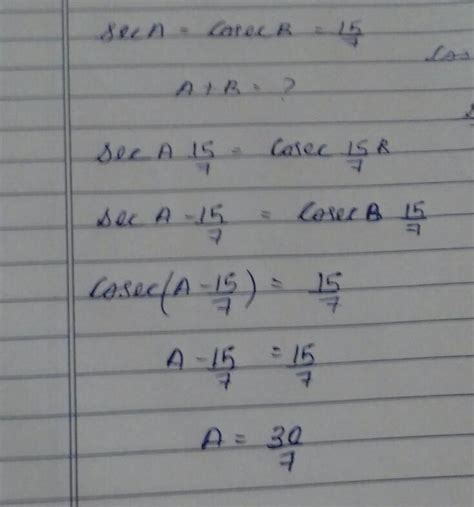 sec A = cosec B = 15/7
cos
A + B = ?
sec A 15/7 = cosec 15/7 B
sec A - 15/7 = cosec B 15/7
cosec(A - 15/7) = 15/7
A - 15/7 = 15/7
A = 30/7